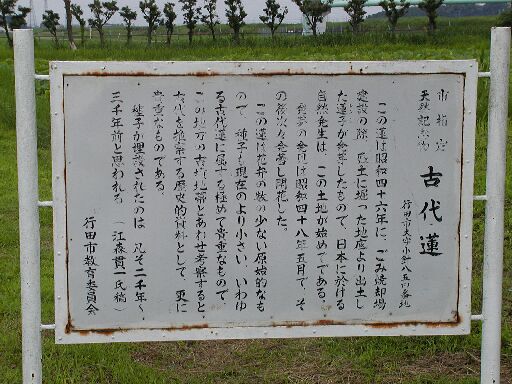 市指定
天然記念物
古代蓮
行田市大字小針八五四番地
この蓮は昭和四十六年に、ごみ焼却場
建設の際、敷土に堀った地底より出土し
た蓮子が発芽したもので、日本に於ける
自然発生は、この土地が始めてである。
発芽の発見は昭和四十八年五月で、そ
の後次々発芽し開花した。
この蓮は花弁の数の少ない原始的なも
ので、種子も現在のより小さい、いわゆ
る古代蓮に属する極めて貴重なもので、
この地方の古墳地帯とあわせ考察すると、
古代を推察する歴史的資料として、更に
貴重なものである。
蓮子が埋蔵されたのは、凡そ二千年〜
三千年前と思われる。(江森貫一氏稿)
行田市教育委員会